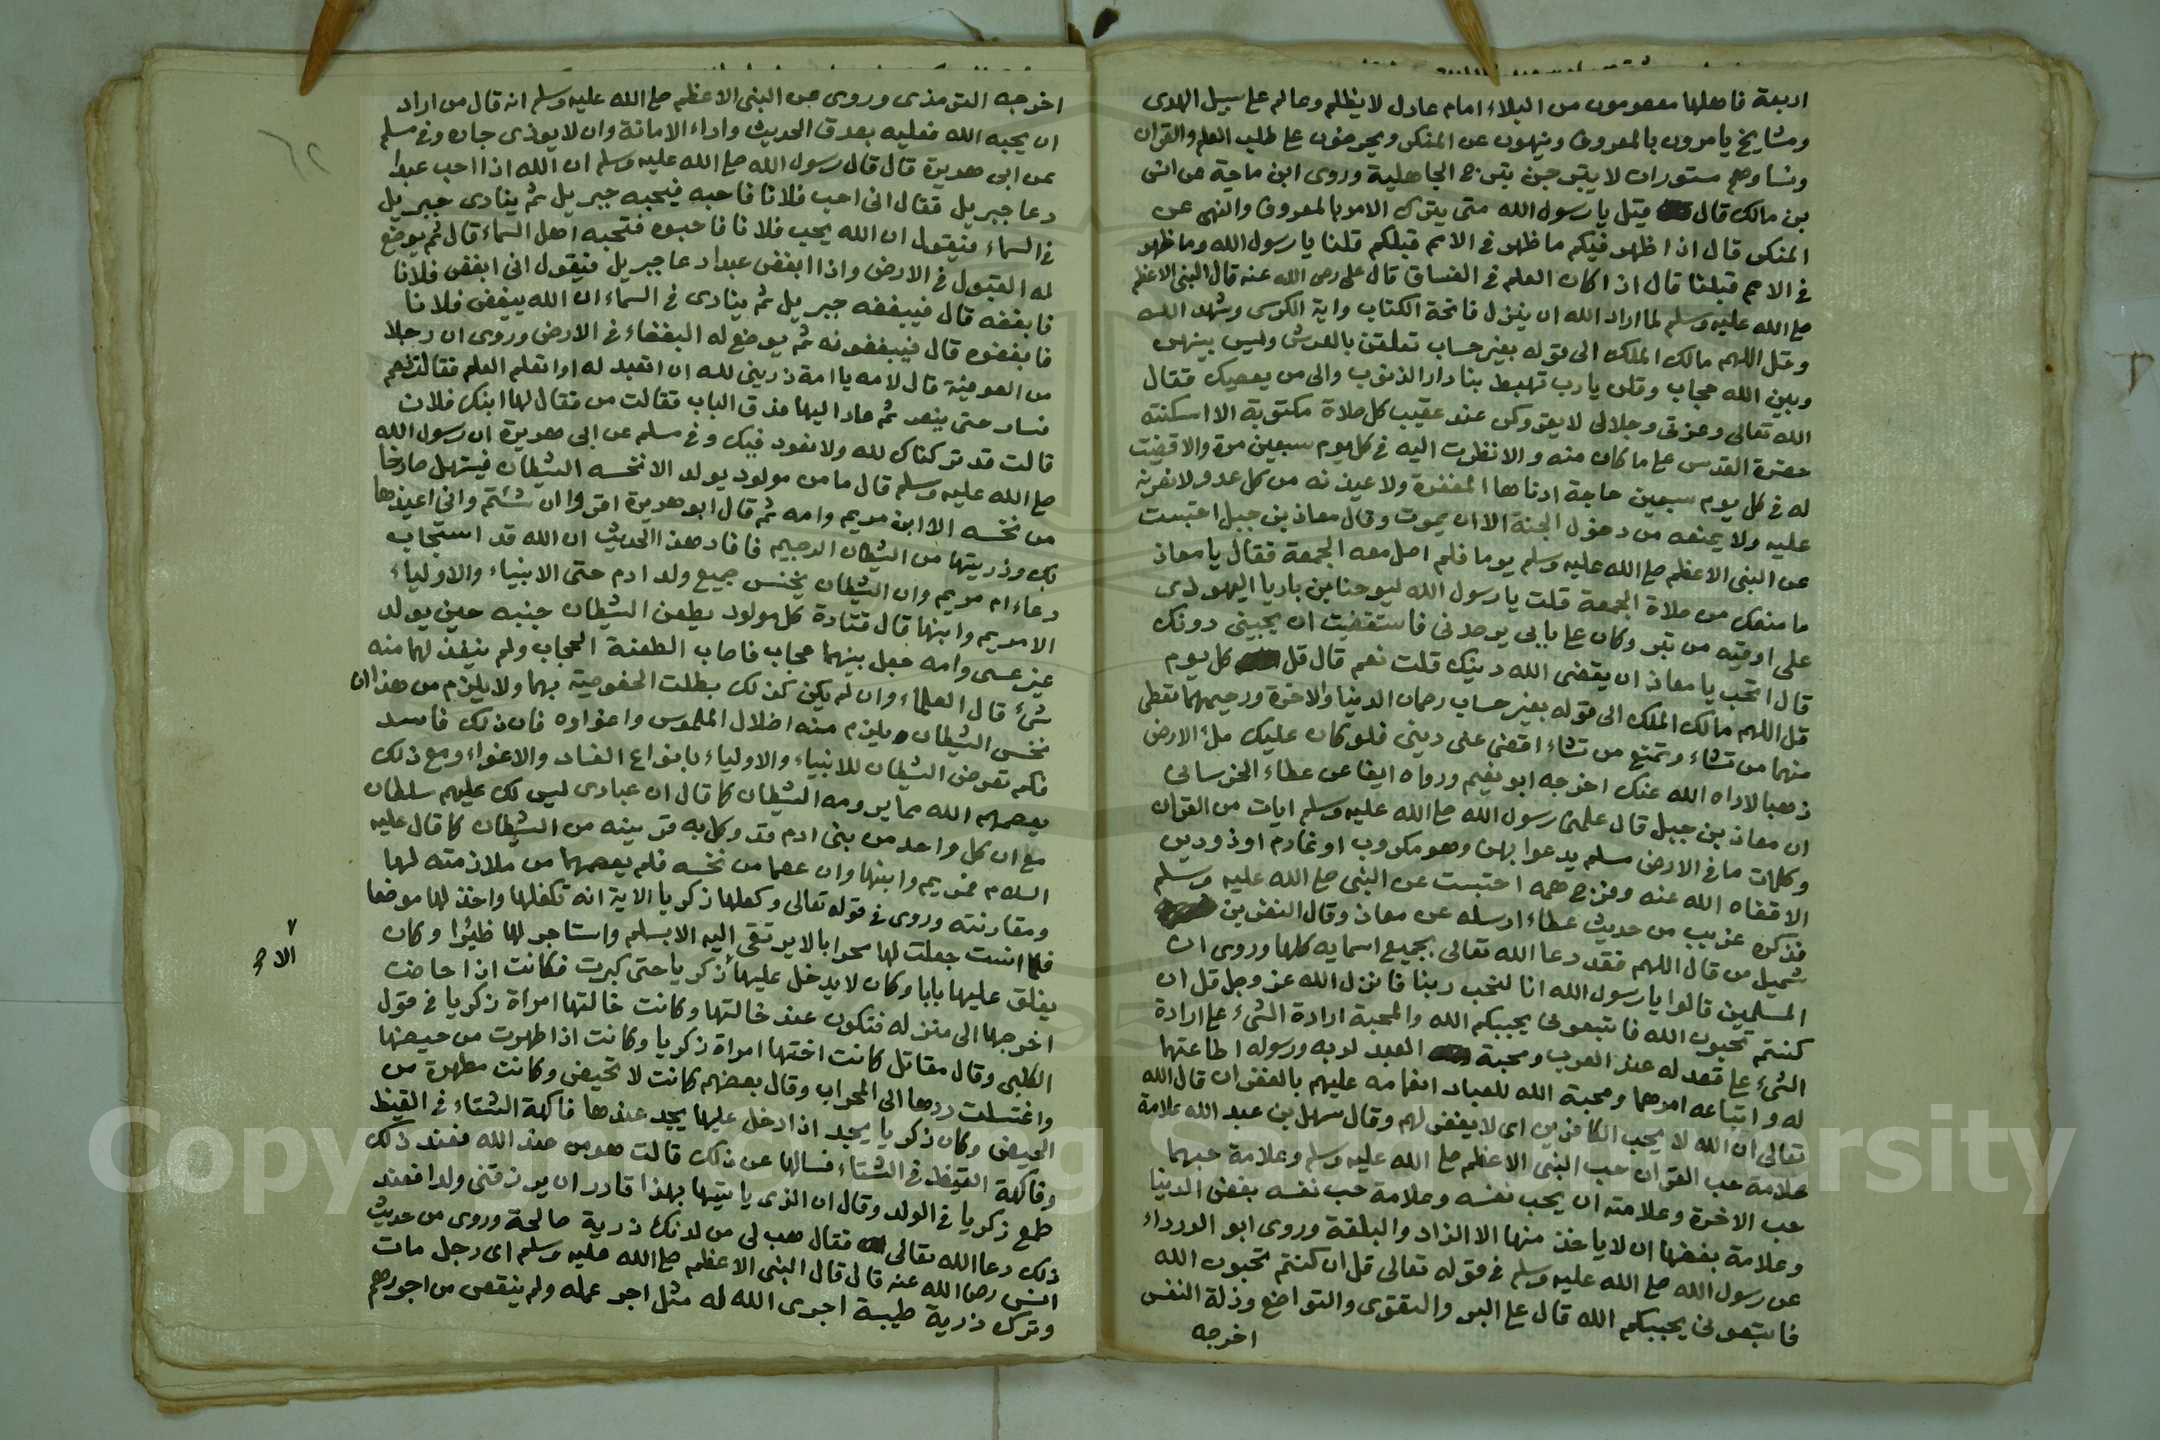 اربعة فاهلها معصومون من البلاء امام عادل لا يظلم وعالم على سبيل الهدى
ومشايخ يامرون بالمعروف وينهون عن المنكر ويحرضون على طلب العلم والقران
ونساوهم مستورات لا يتبرجن تبرج الجاهلية وروى ابن ماجة عن انس
بن مالك قال قيل يا رسول الله متى يترك الامر بالمعروف والنهى عن
المنكر قال اذا ظهر فيكم ما ظهر في الامم قبلكم قلنا يا رسول الله وما ظهر
في الامم قبلنا قال اذا كان العلم في الفساق قال على رضى الله عنه قال النبى الاعظم
صلى الله عليه وسلم لما اراد الله ان ينزل فاتحة الكتاب واية الكرسى وشهد الله
وقل اللهم مالك الملك الى قوله بغير حساب تعلقن بالعرش وليس بينهن
وبين الله حجاب وقلن يا رب تهبط بنا دار الذنوب والى من يعصيك فقال
الله تعالى وعزتى وجلالى لا يقروكن عند عقيب كل صلاة مكتوبة الا اسكنته
حضرة القدس على ما كان منه والا نظرت اليه في كل يوم سبعين مرة والا قضيت
له في كل يوم سبعين حاجة ادناها المغفرة ولا عيذنه من كل عدو ولا نصرته
عليه ولا يمنعه من دخول الجنة الا ان يموت وقال معاذ بن جبل احتبست
عن النبى الاعظم صلى الله عليه وسلم يوما فلم اصل معه الجمعة فقال يا معاذ
ما منعك من صلاة الجمعة قلت يا رسول الله ليوحنا بن باريا اليهودى
على اوقيه من تبر وكان على بابى يرصدنى فاستقضيت ان يحبسنى دونك
قال اتحب يا معاذ ان يقضى الله دينك قلت نعم قال قل كل يوم
قل اللهم مالك الملك الى قوله بغير حساب رحمان الدنيا والاخرة ورحيمهما تعطى
منهما من تشاء وتمنع من تشاء اقض على دينى فلو كان عليك ملء الارض
ذهبا لاداه الله عنك اخرجه ابو نعيم ورواه ايضا عن عطاء الخرسانى
ان معاذ بن جبل قال علمنى رسول الله صلى الله عليه وسلم ايات من القران
وكلمات ما في الارض مسلم يدعوا بهن وهو مكروب او غارم او ذو دين
الا قضاه الله عنه وفرج همه احتبست عن النبى صلى الله عليه وسلم
فذكره غريب من حديث عطاء ارسله عن معاذ وقال النضر بن
شميل من قال اللهم فقد دعا الله تعالى بجميع اسمايه كلها وروى ان
المسلمين قالوا يا رسول الله انا لنحب ربنا فانزل الله عز وجل قل ان
كنتم تحبون الله فاتبعونى يحببكم الله والمحبة ارادة الشىء على ارادة
الشىء على قصد له عند العرب ومحبة العبد لربه ورسوله اطاعتهما
له واتباعه امرهما ومحبة الله للعباد انعامه عليهم بالغفران قال الله
تعالى ان الله لا يحب الكافرين اى لا يغفر لهم وقال سهل بن عبد الله علامة
علامة حب القران حب النبى الاعظم صلى الله عليه وسلم وعلامة حبهما
حب الاخرة وعلامته ان يحب نفسه وعلامة حب نفسه بغض الدنيا
وعلامة بغضها ان لا ياخذ منها الا الزاد والبلغة وروى ابو الدرداء
عن رسول الله صلى الله عليه وسلم في قوله تعالى قل ان كنتم تحبون الله
فاتبعونى يحببكم الله قال على البر والتقوى والتواضع وذلة النفس
اخرجه
اخرجه الترمذى وروى عن النبى الاعظم صلى الله عليه وسلم انه قال من اراد
ان يحبه الله فعليه بصدق الحديث واداء الامانة وان لا يوذى جاره وفى مسلم
عن ابى هريرة قال قال رسول الله صلى الله عليه وسلم ان الله اذا احب عبدا
دعا جبريل فقال انى احب فلانا فاحبه فيحبه جبريل ثم ينادى جبريل
في السماء فيقول ان الله يحب فلانا فاحبوه فتحبه اهل السماء قال ثم يوضع
له القبول في الارض واذا ابغض عبدا دعا جبريل فيقول انى ابغض فلانا
فابغضه قال فيبغضه جبريل ثم ينادى في السماء ان الله يبغض فلانا
فابغضوه قال فيبغضونه ثم يوضع له البغضاء في الارض وروى ان رجلا
من الصوفية قال لامه يا امة ذرينى لله ان اتعبد له او اتعلم العلم فقالت نعم
فسار حتى بنصر ثم عاد اليها فدق الباب فقالت من فقال لها ابنك فلان
قالت قد تركناك لله ولا نعود فيك وفى مسلم عن ابى هريرة ان رسول الله
صلى الله عليه وسلم قال ما من مولود يولد الا نخسه الشيطان فيستهل صارخا
من نخسه الا ابن مريم وامه ثم قال ابو هريرة اقروا ان شئتم وانى اعيذها
بك وذريتها من الشيطان الرجيم فافاد هذا الحديث ان الله قد استجاب
دعاء ام مريم وان الشيطان ينخس جميع ولد ادم حتى الانبياء والاولياء
الا مريم وابنها قال قتادة كل مولود يطعن الشيطان جنبه حين يولد
غير عسى وامه جعل بينهما حجاب فاصاب الطعنة الحجاب ولم ينفذ لهما منه
شىء قال العلماء وان لم يكن كذلك بطلت الخصوصية بهما ولا يلزم من هذا ان
نخس الشيطان يلزم منه اضلال الملموس واغواوه فان ذلك فاسد
فكم تعرض الشيطان للانبياء والاولياء بانواع الفساد والاغواء ومع ذلك
يعصمهم الله مما يرومه الشيطان كما قال ان عبادى ليس لك عليهم سلطان
مع ان كل واحد من بنى ادم قد وكل به قرينه من الشيطان كما قال عليه
السلام فمريم وابنها وان عصما من نخسه فلم يعصمهما من ملازمته لهما
ومقارنته وروى في قوله تعالى وكفلها زكريا الاية انه تكفلها واخذ لها موضعا
فلما انست جعلت لها محرابا لا يرتقى اليه الا بسلم واستاجر لها ظيئرا وكان
الا م
يغلق عليها بابا وكان لا يدخل عليها زكريا حتى كبرت فكانت اذا حاضت
اخرجها الى منزله فتكون عند خالتها وكانت خالتها امراة زكريا في قول
الكلبى وقال مقاتل كانت اختها امراة زكريا وكانت اذا طهرت من حيضها
واغتسلت ردها الى المحراب وقال بعضهم كانت لا تحيض وكانت مطهرة من
الحيض وكان زكريا يجد اذا دخل عليها يجد عندها فاكهة الشتاء في القيظ
وفاكهة القيظ في الشتاء فسالها عن ذلك قالت هو من عند الله فعند ذلك
طمع زكريا في الولد وقال ان الذى ياتيها بهذا قادر ان يرزقنى ولدا فعند
ذلك دعا الله تعالى فقال هب لى من لدنك ذرية صالحة وروى من حديث
انس رضى الله عنه قال قال النبى الاعظم صلى الله عليه وسلم اى رجل مات
وترك ذرية طيبة اجرى الله له مثل اجر عمله ولم ينقص من اجورهم
Copyright © King Saud University